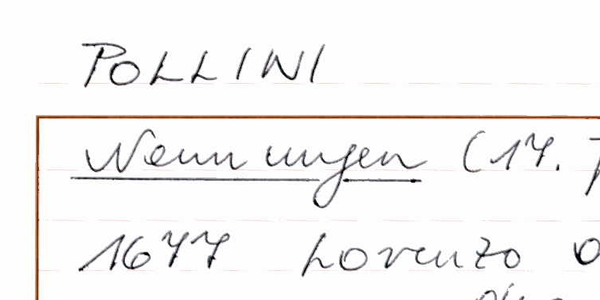 POLLINI
Nennungen (17.
1677 Lorenzo